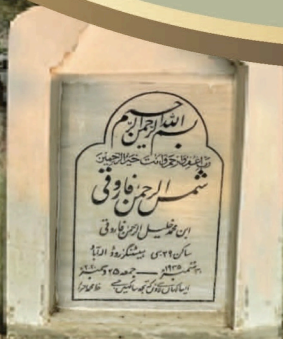 بسم اللہ الرحمن الرحیم
رب اغفر وارحم وانت خیر الراحمین
شمس الرحمن فاروقی
ابن محمد خلیل الرحمن فاروقی
ساکن ۲۹ سی ہیسٹنگز روڈ الہ آباد
ستمبر ۱۹۳۵ — جمعہ ۲۵ دسمبر ۲۰۲۰